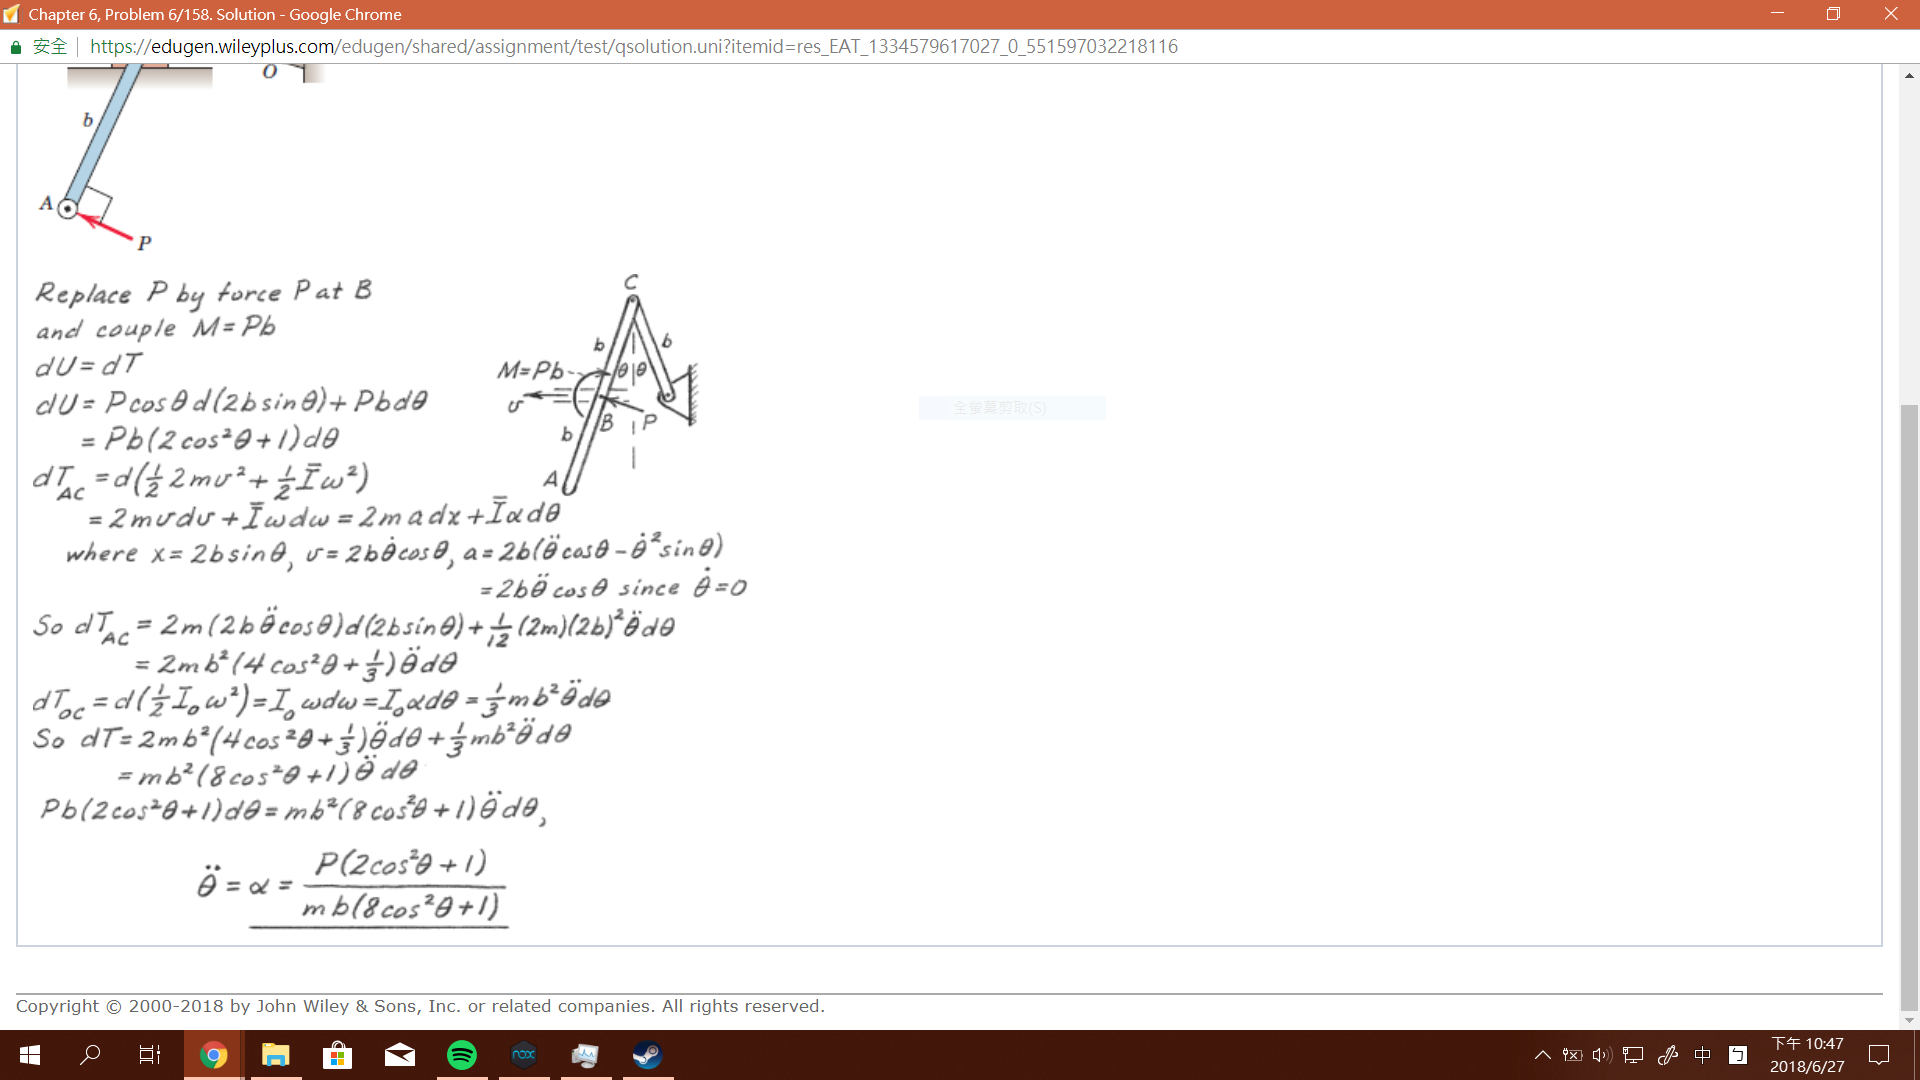 Chapter 6, Problem 6/158. Solution - Google Chrome
安全 | https://edugen.wileyplus.com/edugen/shared/assignment/test/qsolution.uni?itemid=res_EAT_1334579617027_0_551597032218116
O
b
A
P
Replace P by force P at B
and couple M = Pb
dU = dT
dU = P cos θ d(2b sin θ) + Pb dθ
= Pb(2 cos²θ + 1) dθ
dT_AC = d(½ 2mv² + ½ Īω²)
= 2mv dv + Īω dω = 2m a dx + Īα dθ
where x = 2b sin θ, v = 2bθ̇ cos θ, a = 2b(θ̈ cos θ - θ̇² sin θ)
= 2bθ̈ cos θ since θ̇ = 0
So dT_AC = 2m(2bθ̈ cos θ) d(2b sin θ) + 1/12 (2m)(2b)² θ̈ dθ
= 2mb²(4 cos²θ + 1/3) θ̈ dθ
dT_OC = d(½ I₀ω²) = I₀ ω dω = I₀ α dθ = 1/3 mb² θ̈ dθ
So dT = 2mb²(4 cos²θ + 1/3) θ̈ dθ + 1/3 mb² θ̈ dθ
= mb²(8 cos²θ + 1) θ̈ dθ
Pb(2 cos²θ + 1) dθ = mb²(8 cos²θ + 1) θ̈ dθ,
θ̈ = α = P(2 cos²θ + 1) / mb(8 cos²θ + 1)
C
b
b
θ θ
M = Pb
v
B
P
b
A
全螢幕剪取(S)
Copyright © 2000-2018 by John Wiley & Sons, Inc. or related companies. All rights reserved.
nox
中
ㄅ
下午 10:47
2018/6/27